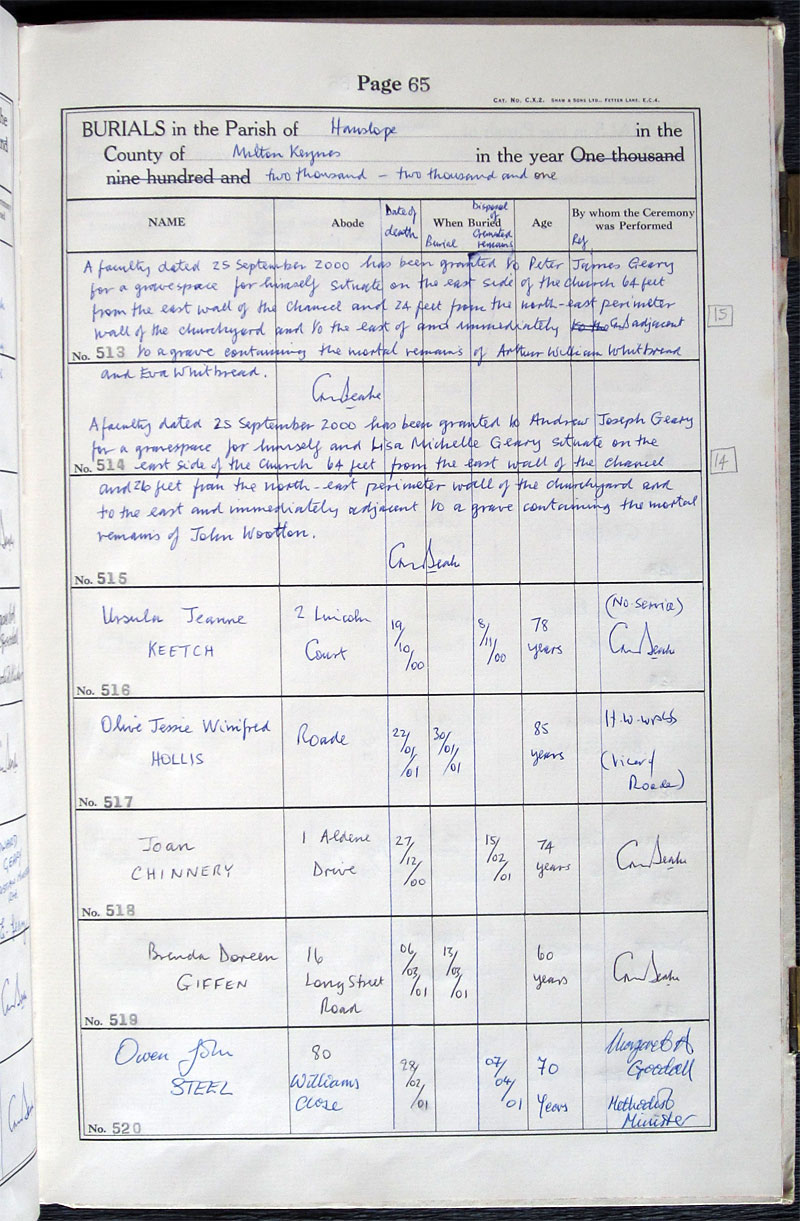 Page 65
CAT. NO. C.X.2. SHAW & SONS LTD., FETTER LANE, E.C.4.
BURIALS in the Parish of Hanslope in the
County of Milton Keynes in the year One thousand
nine hundred and two thousand - two thousand and one
NAME Abode Date of death When Buried Burial Disposal of Cremated remains Age By whom the Ceremony was Performed
Ref
A faculty dated 25 September 2000 has been granted to Peter James Geary
for a gravespace for himself situate on the east side of the church 64 feet
from the east wall of the chancel and 24 feet from the north-east perimeter
wall of the churchyard and to the east of and immediately to the adjacent
15
No. 513 to a grave containing the mortal remains of Arthur William Whitbread
and Eva Whitbread.
A faculty dated 25 September 2000 has been granted to Andrew Joseph Geary
for a gravespace for himself and Lisa Michelle Geary situate on the
No. 514 east side of the church 64 feet from the east wall of the chancel
14
and 26 feet from the north-east perimeter wall of the churchyard and
to the east and immediately adjacent to a grave containing the mortal
remains of John Wootton.
No. 515
Ursula Jeanne 2 Lincoln 19/10/00 8/11/00 78 (No service)
KEETCH Court years
No. 516
Olive Jessie Winifred Roade 22/01/01 30/01/01 85
HOLLIS years (Vicar of
Roade)
No. 517
Joan 1 Aldene 27/12/00 15/02/01 74
CHINNERY Drive years
No. 518
Brenda Doreen 16 06/03/01 13/03/01 60
GIFFEN Long Street years
Road
No. 519
Owen John 80 28/02/01 07/04/01 70 Margaret A
STEEL Williams Goodall
Close Years Methodist
Minister
No. 520